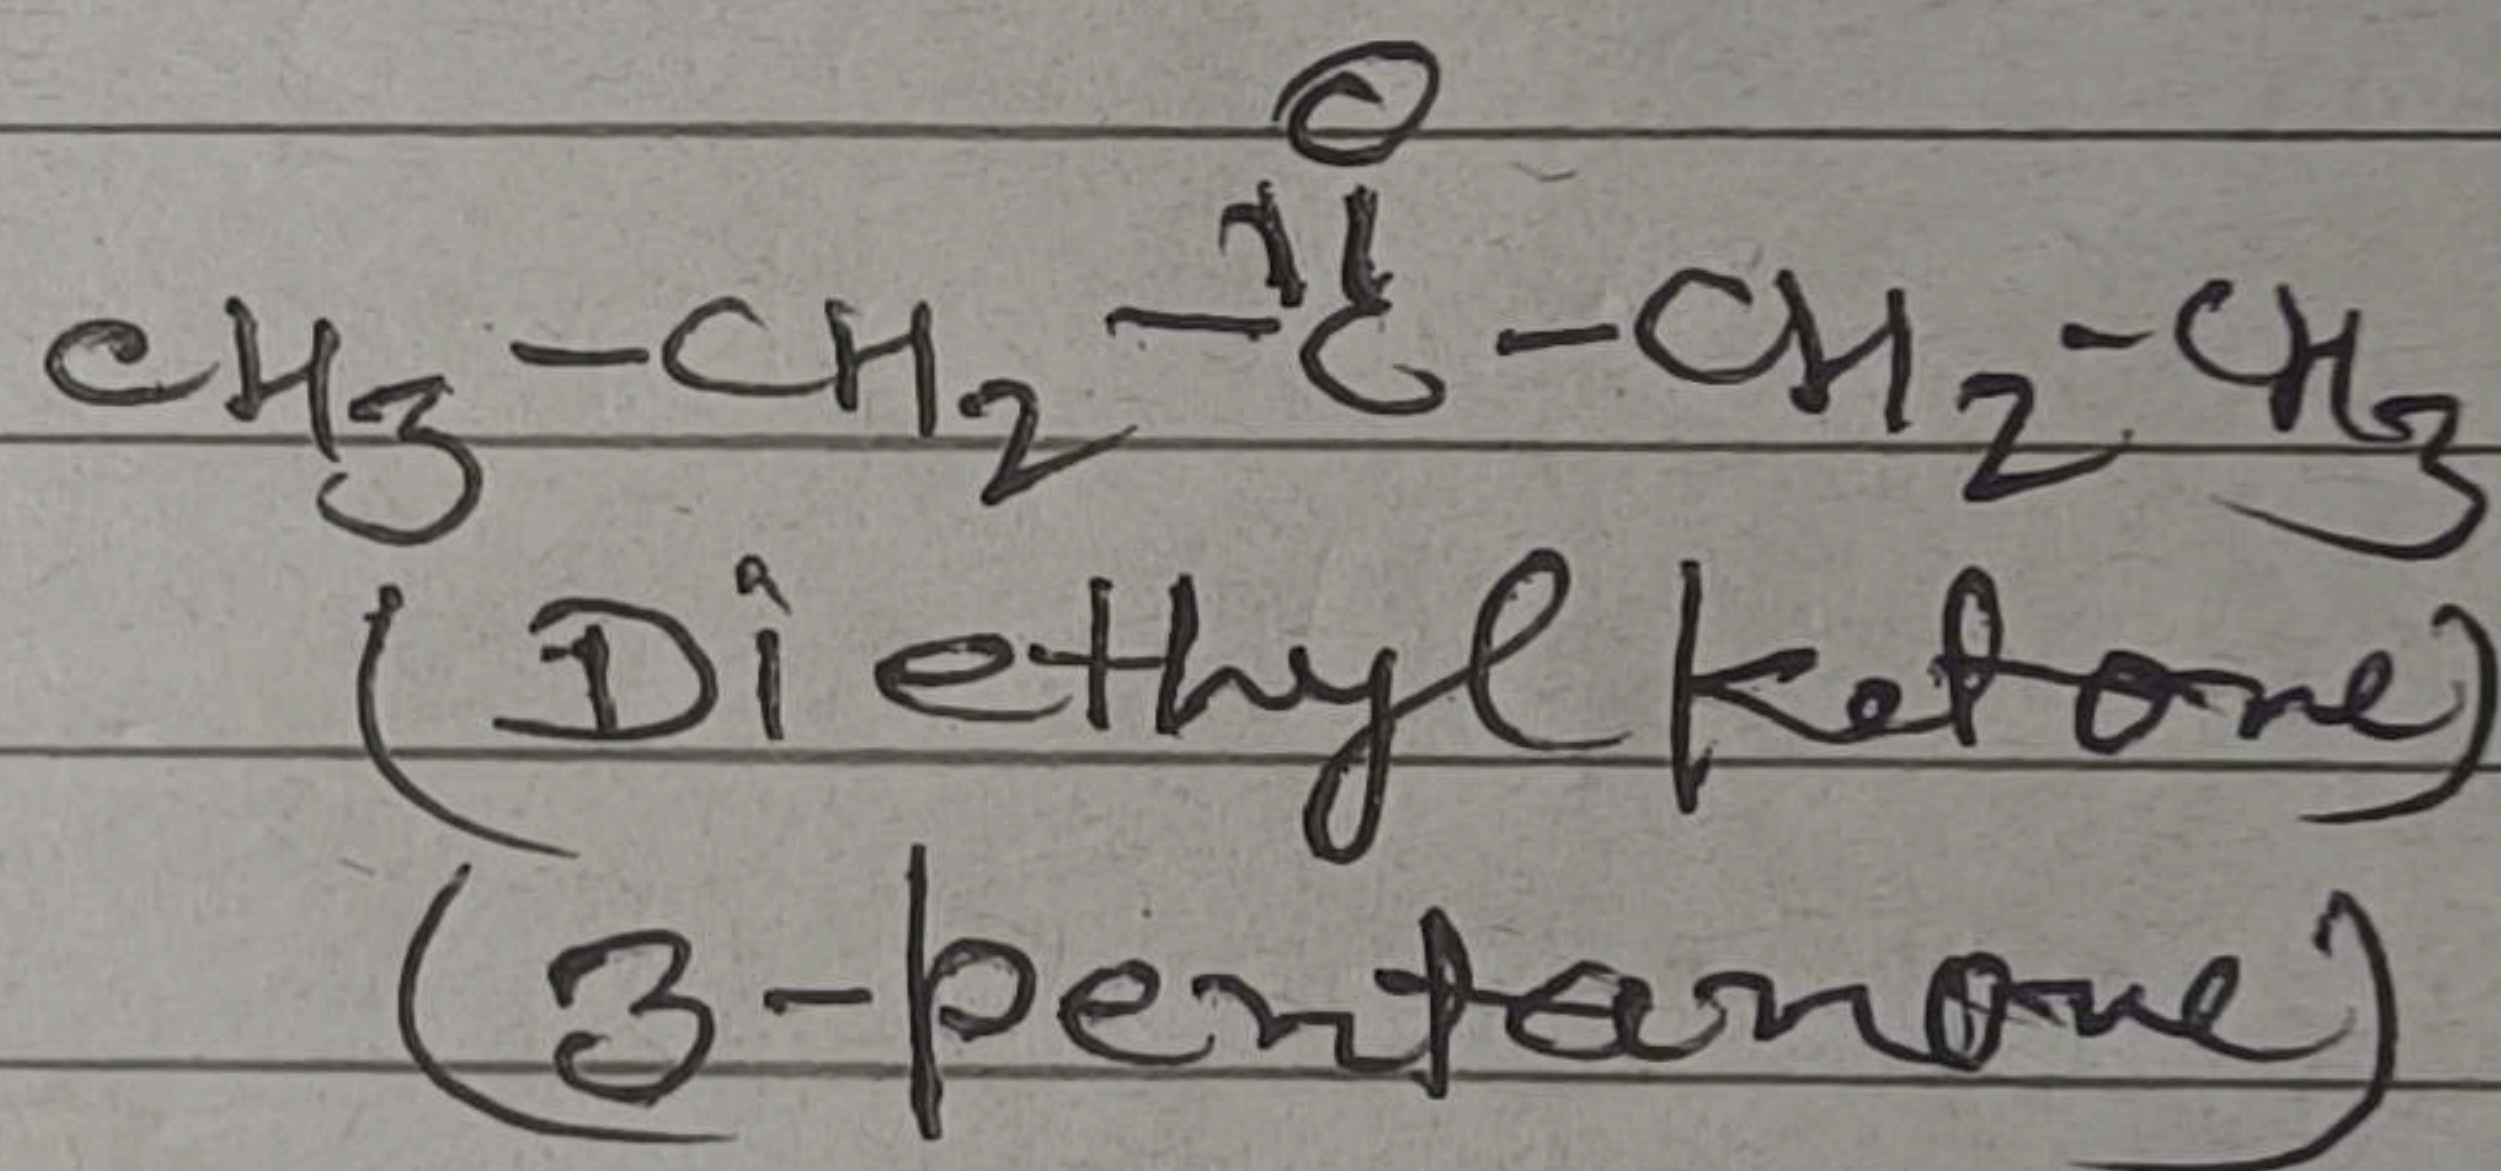 O
||
CH3-CH2-C-CH2-CH3
(Diethyl ketone)
(3-pentanone)